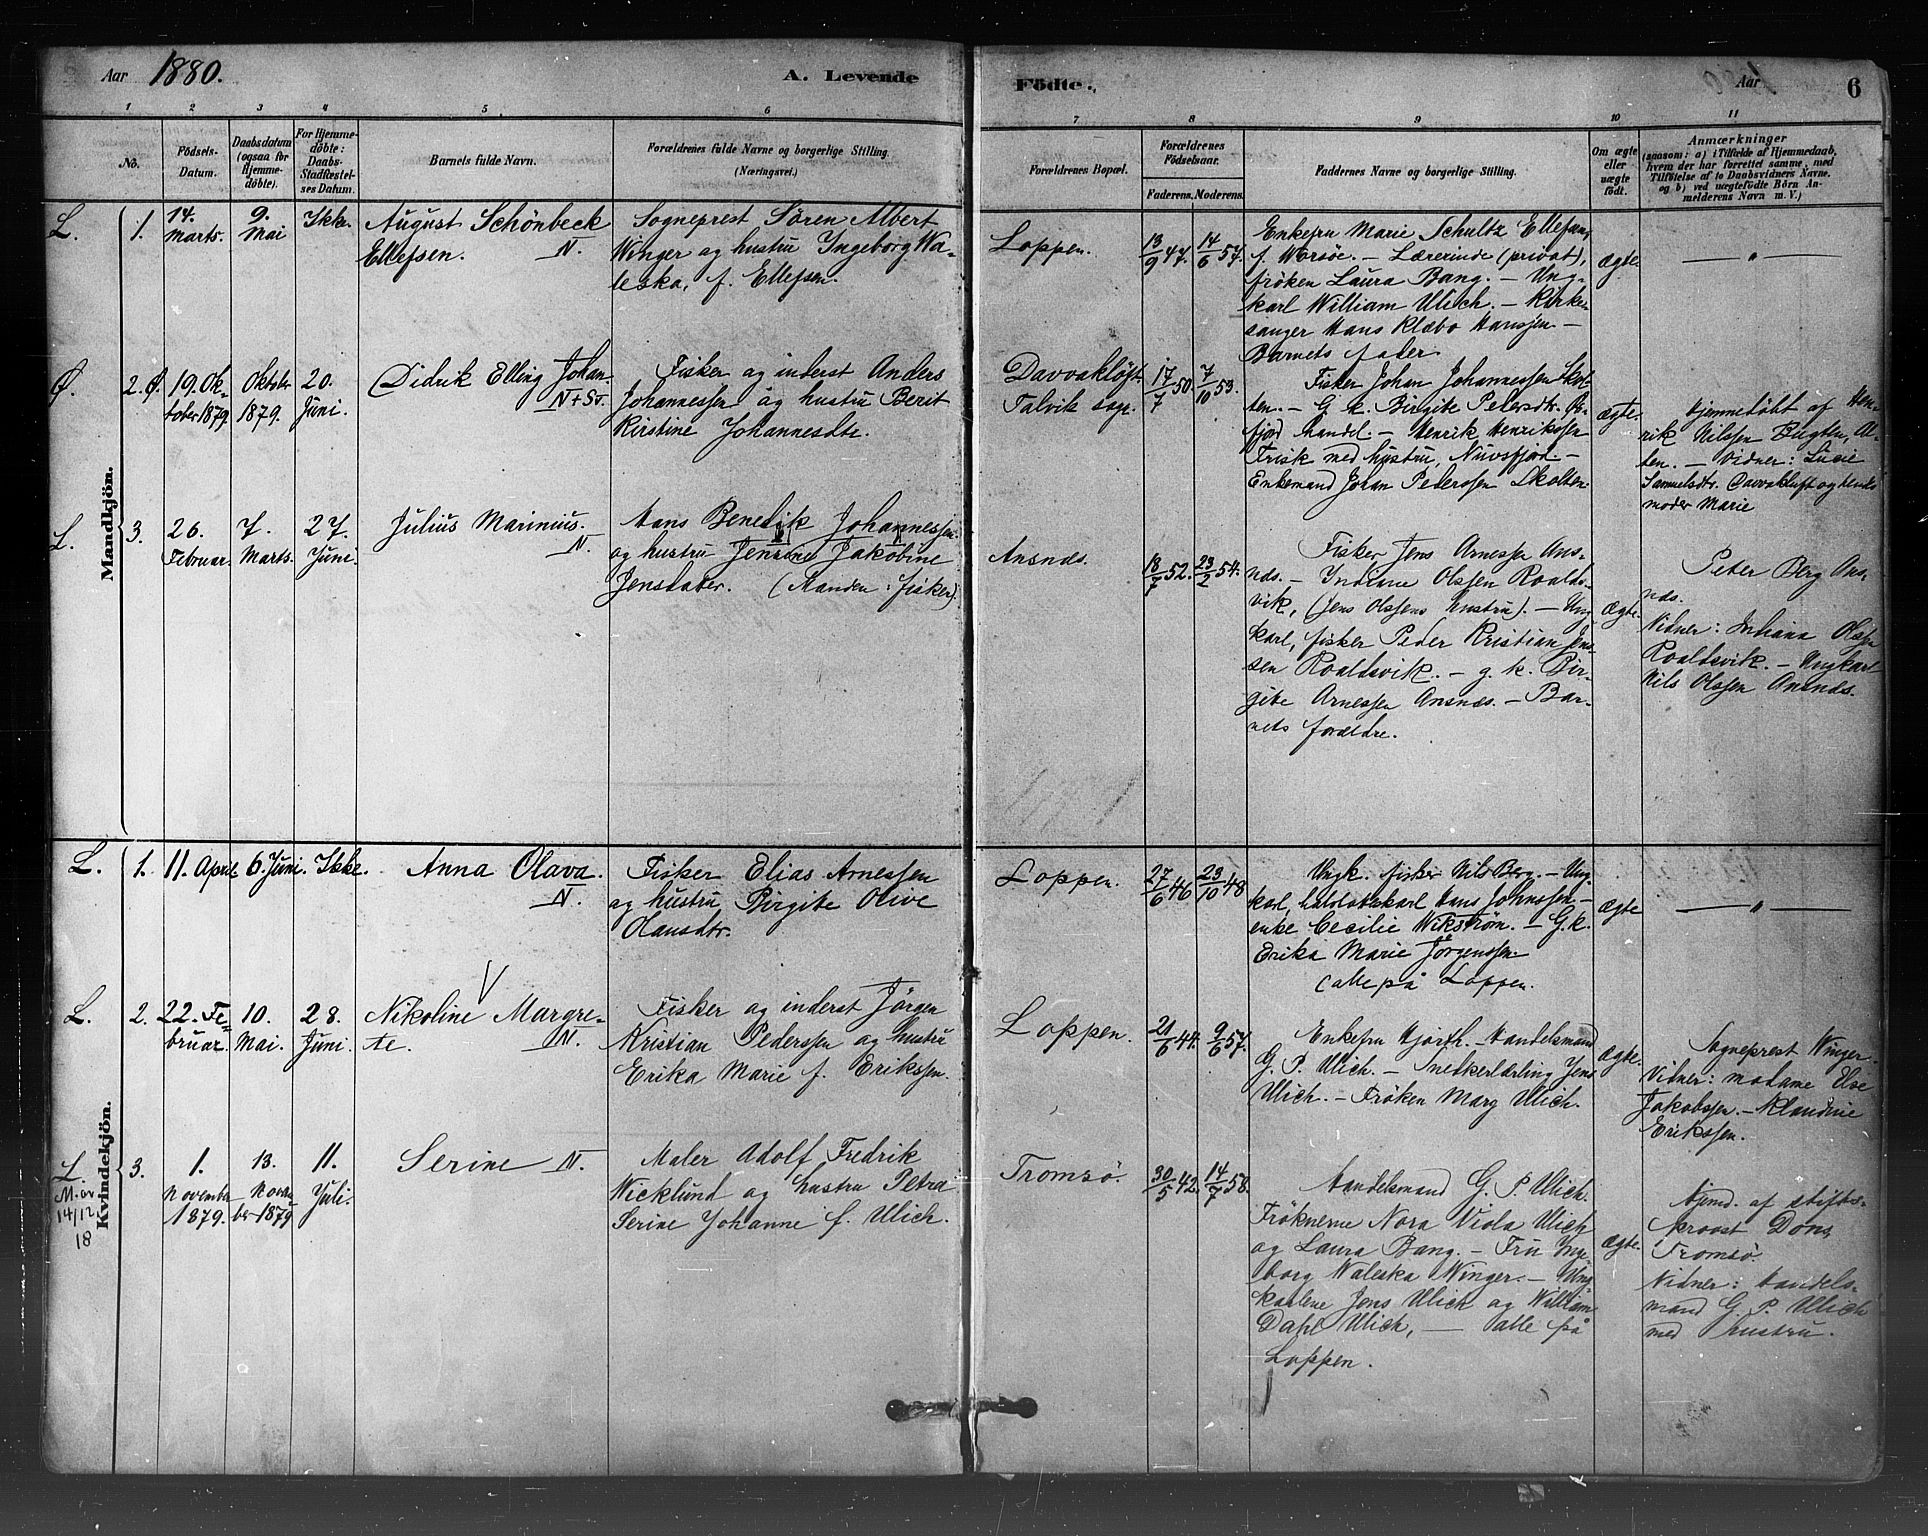 Aar 1880.
A. Levende
Fødte.
Aar
6
1
2
3
4
5
6
7
8
9
10
11
No.
Fødsels-
Datum.
Daabsdatum
(ogsaa for
Hjemme-
døbte).
For Hjemme-
døbte:
Daabs-
Stadfæstel-
ses Datum.
Barnets fulde Navn.
Forældrenes fulde Navne og borgerlige Stilling.
(Næringsvei.)
Forældrenes Bopæl.
Forældrenes
Fødselsaar.
Faderens.
Moderens.
Faddernes Navne og borgerlige Stilling.
Om ægte
eller
uægte
født.
Anmærkninger
(saasom: a) i Tilfælde af Hjemmedaab,
hvem der har forrettet samme, med
Tilføielse af to Daabsvidners Navne,
og b) ved uægtefødte Børn An-
melderens Navn m. V.)
Mandkjön.
L.
1.
14.
Marts.
9.
Mai
Ikke.
August Schönbeck
Ellefsen. N.
Sogneprest Sören Albert
Winger og hustru Ingeborg Wa-
leska, f. Ellefsen.
Loppen.
13/9 47.
14/6 57.
Enkefru Marie Schultz Ellefsen,
f. Worsöe. – Lærerinde (privat),
fröken Laura Bang. – Ung-
karl William Ulich. – Kirke-
sanger Hans Klæbo Hansen –
Barnets fader
ægte.
— " —
Ø.
2. Ø.
19. Ok-
tober 1879.
Oktober
1879.
20.
Juni.
Didrik Elling Johan.
N + Sv.
Fisker og inderst Anders
Johannessen og hustru Berit
Kirstine Johannesdtr.
Davvakløft
Talvik sogn.
17/7 50.
7/10 53.
Fisker Johan Johannessen Skol-
ten. – G. k. Birgite Petersdtr. Øx-
fjord handel. – Henrik Henriksen
Frisk med hustru, Nuvsfjord. –
Enkemand Johan Pedersen Skolten.
ægte.
Hjemmedöbt af Hen-
rik Nilssen Bugten, Al-
ten. – Vidner: Lucie
Samuelsdtr. Davvakluft og hendes
moder Marie
L.
3.
26.
Februar.
7.
Marts.
27.
Juni.
Julius Marinius.
N.
Hans Benedik Johannessen
og hustru Jensine Jakobine
Jensdatter. (Manden: fisker).
Ansnæs.
18/7 52.
23/2 54.
Fisker Jens Arnessen Ans-
næs. – Indiane Olsen Roalds-
vik, (Jens Olssens hustru). – Ung
karl, fisker Peder Kristian Jens-
sen Roaldsvik. – g. k. Bir-
gite Arnessen Ansnæs. – Bar-
nets forældre.
ægte.
Peter Berg Ans-
næs.
Vidner: Inhiana Olsen
Roaldsvik. – Ungkarl
Nils Olssen Ansnæs.
Kvindekjön.
L.
1.
11. April.
6. Juni.
Ikke.
Anna Olava.
N.
Fisker Elias Arnessen
og hustru Birgite Olive
Olausdtr.
Loppen.
27/6 46
23/10 48
Ungk. fisker Nils Berg. – Ung-
karl, Hans Johnssen –
enke Cecilie Wikström. – G. k.
Erika Marie Jørgenssen.
alle på Loppen.
ægte
— " —
L.
2.
22. Fe-
bruar.
10.
Mai.
28.
Juni.
Nikoline Margre-
te. N.
Fisker og inderst Jörgen
Kristian Pederssen og hustru
Erika Marie f. Erikssen.
Loppen.
21/6 44.
9/6 57.
Enkefru Hjorth. – Handelsmand
G. P. Ulich. – Snedkerlærling Jens
Ulich. – Fröken Marg Ulich.
ægte.
Sogneprest Winger.
Vidner: madame Else
Jakobssen. – Klaudine
Erikssen.
L.
14/12
18
3.
1.
November
1879.
13.
Novem-
ber 1879
11.
Juli.
Serine N.
Maler Adolf Fredrik
Wicklund og hustru Petra
Serine Johanne f. Ulich.
Tromsö.
30/5 42.
14/7 58.
Handelsmand G. P. Ulich.
Fröknerne Nora Viola Ulich
og Laura Bang. – Fru Inge
borg Waleska Winger. – Ung
karlene Jens Ulich og William
Dahl Ulich, – alle på
Loppen.
ægte.
Hjmd. af stifts-
provst Dons,
Tromsö.
Vidner: Handels-
mand G. P. Ulich
med hustru.